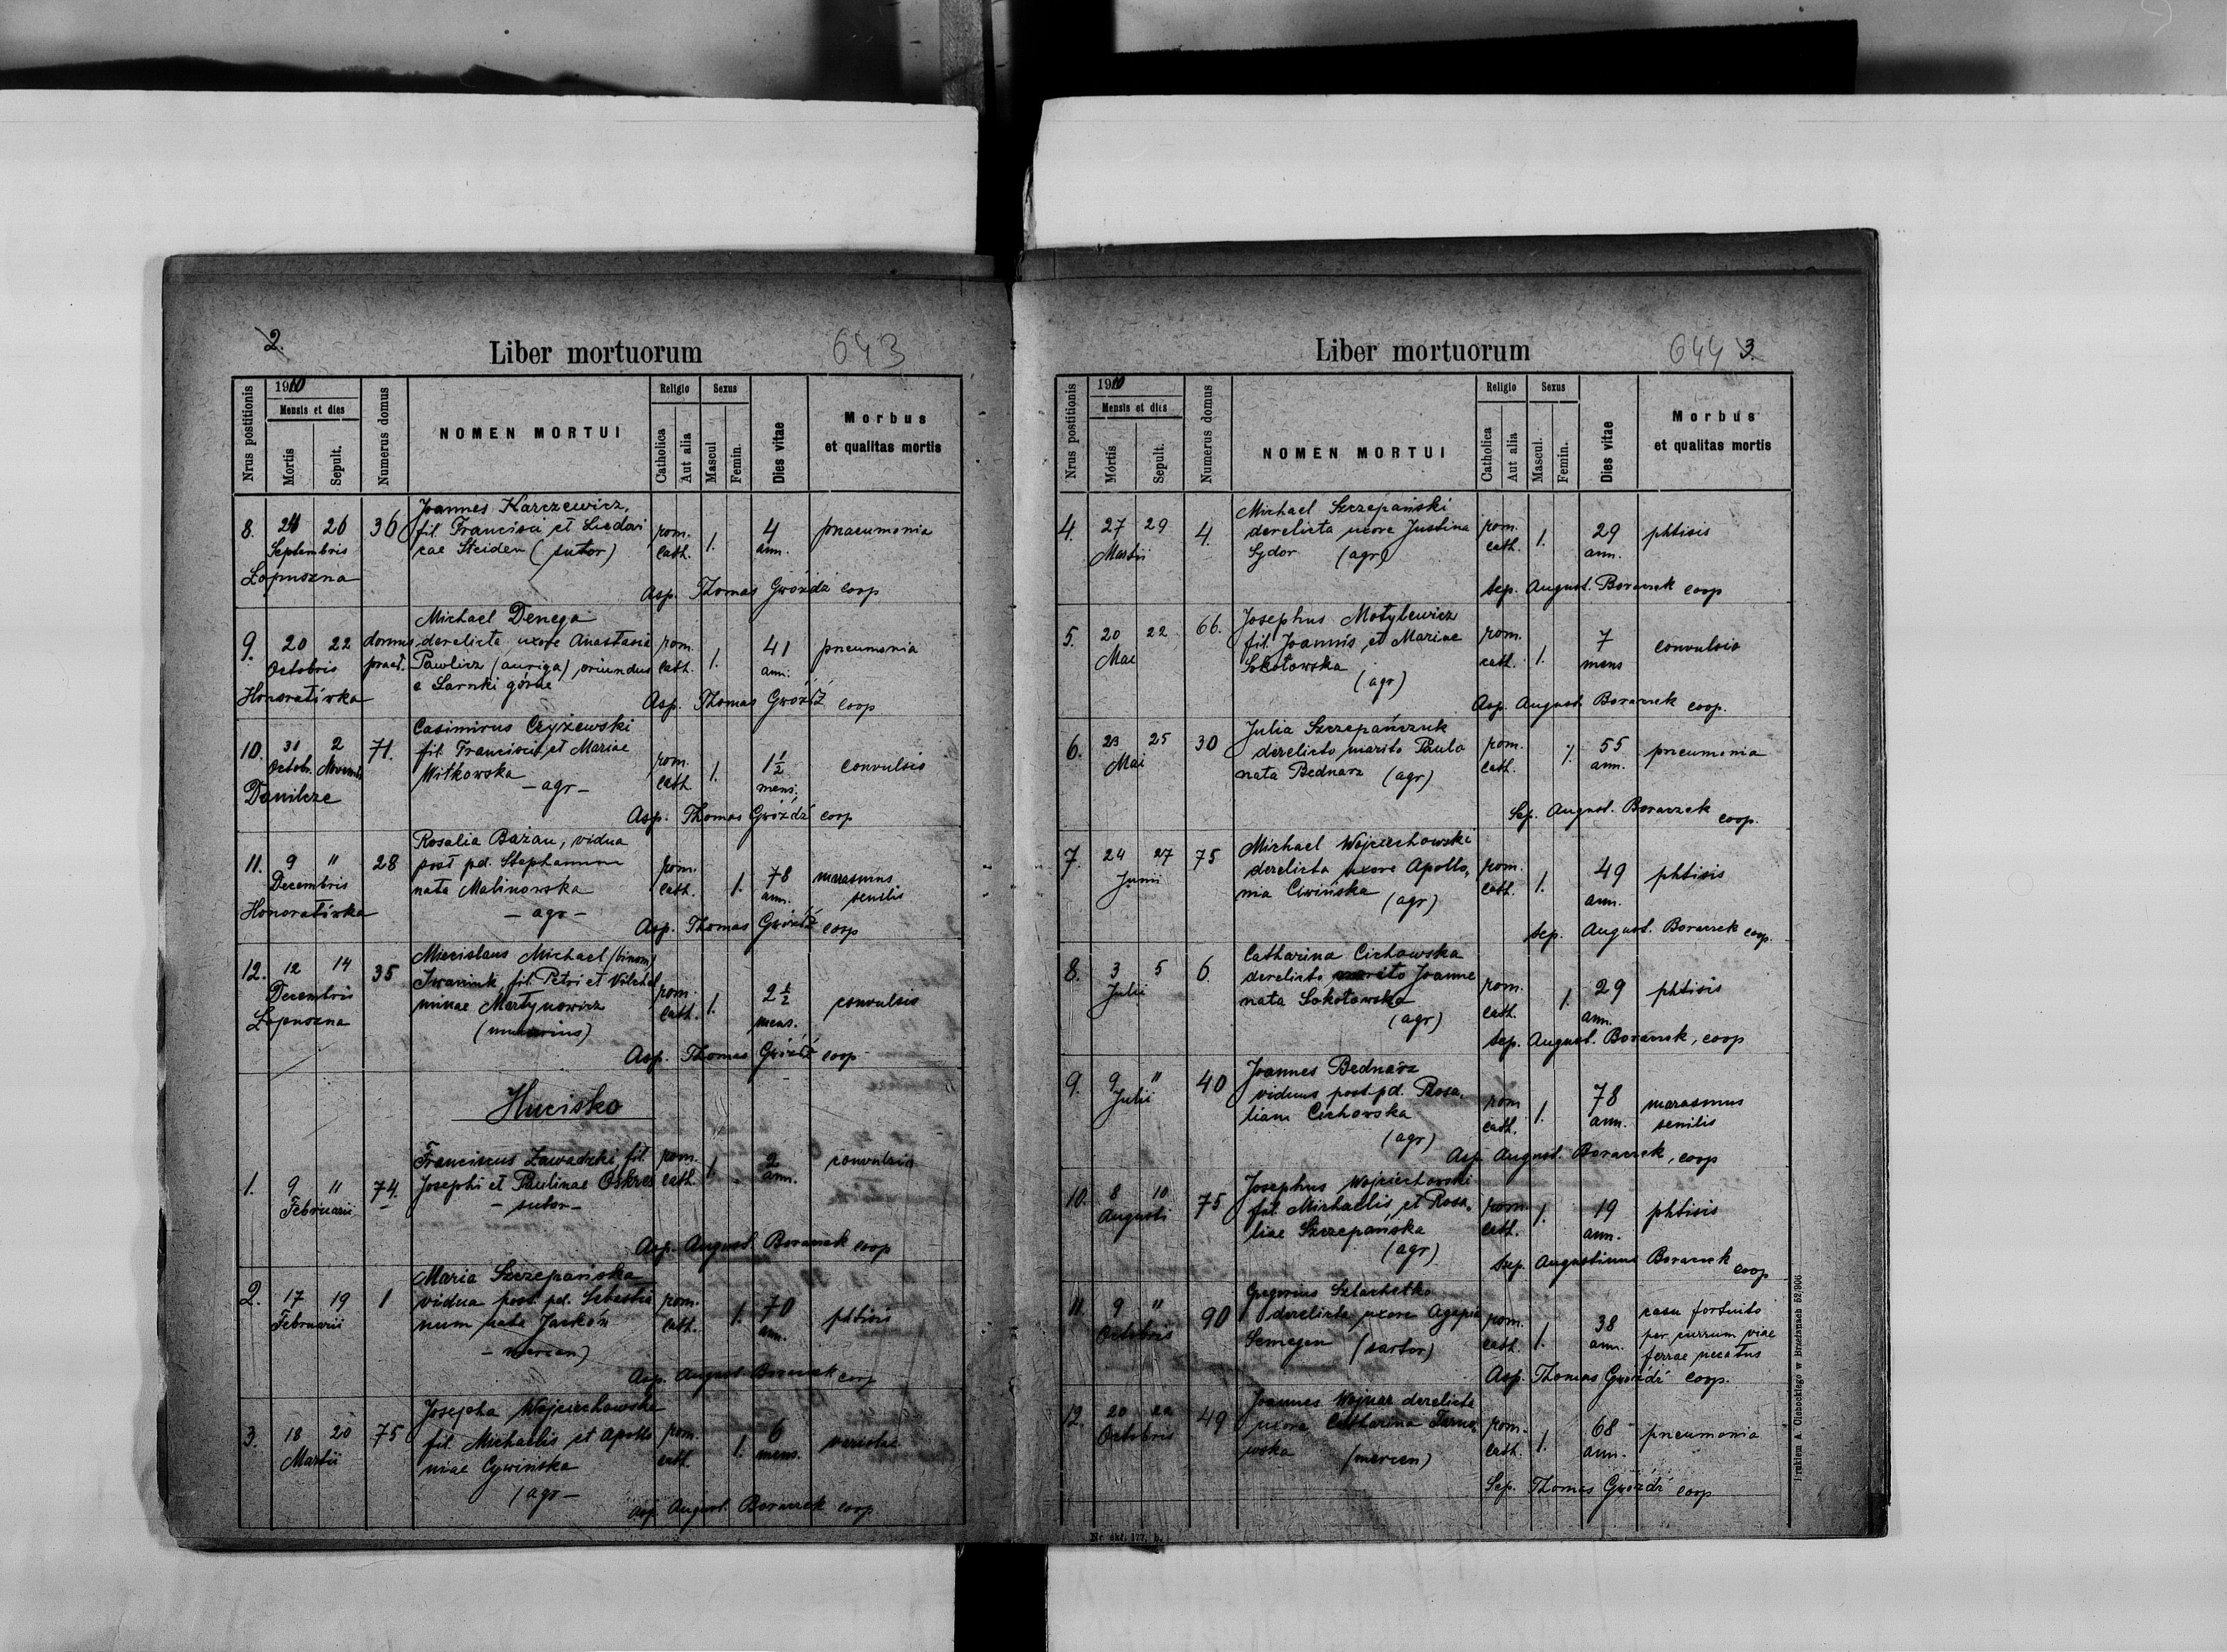 2.
Liber mortuorum
643
Nrus postitionis
1910
Mensis et dies
Mortis
Sepult.
Numerus domus
NOMEN MORTUI
Religio
Catholica
Aut alia
Sexus
Mascul
Femin.
Dies vitae
Morbus
et qualitas mortis
8. 24 26 36 Joannes Karczewicz,
fil. Francisci et Ludovi
cae Steiden (sutor)
Septembris
Łopuszna
rom.
cath. 1. 4
ann. pnaeumonia
Asp. Thomas Gwóźdź coop
9. 20 22 domus
praet.
Octobris
Honoratówka
Michael Denega
derelicta uxore Anastasia
Pawlicz (auriga), oriundus
e Sarnki górne
rom.
cath. 1. 41
ann. pneumonia
Asp. Thomas Gwóźdź coop
10. 31 2 71.
Octob. Novemb.
Danilcze
Casimirus Czyżewski
fil. Francisci et Mariae
Witkowska
- agr -
rom.
cath 1. 1½
mens. convulsio
Asp. Thomas Gwóźdź coop
11. 9 " 28
Decembris
Honoratówka
Rosalia Bażan, vidua
post pd. Stephanum
nata Malinowska
- agr -
rom.
cath. 1. 78
ann. marasmus
senilis
Asp. Thomas Gwóźdź coop
12. 12 14 35
Decembris
Łopuszna
Miecislaus Michael (binom)
Iwaniuk, fil. Petri et Vilchel
minae Martynowicz
rom.
cath. 1. 2½
mens. convulsio
Asp. Thomas Gwóźdź coop
Hucisko
1. 9 " 74.
Februarii
Franciscus Zawadzki fil.
Josephi et Paulinae Oskres
- sutor -
rom.
cath. 1. 2
ann. convulsio
Asp. August. Boraczek coop
2. 17 19 1
Februarii
Maria Szczepańska
vidua post pd. Sebastia
num nata Jackón
- mercen)
rom.
cath. 1. 70
ann. phtisis
Asp. August. Boraczek coop
3. 18 20 75
Martii
Josepha Wojciechowska
fil. Michaelis et Apollo
niae Cywińska
(agr -
rom.
cath. 1. 6
mens. variolae
Asp. August. Boraczek coop
Liber mortuorum
644 3.
Nrus postitionis
1910
Mensis et dies
Mortis
Sepult.
Numerus domus
NOMEN MORTUI
Religio
Catholica
Aut alia
Sexus
Mascul.
Femin.
Dies vitae
Morbus
et qualitas mortis
4. 27 29 4.
Martii
Michael Szczepański
derelicta uxore Justina
Sydor (agr)
rom.
cath. 1. 29
ann. phtisis
Sep. August. Boraczek coop
5. 20 22 66.
Mae
Josephus Motylewicz
fil. Joannis, et Mariae
Sokołowska
(agr)
rom.
cath. 1. 7
mens convulsio
Asp. August. Boraczek coop.
6. 23 25 30
Mai
Julia Szczepańczuk
derelicto marito Paulo
nata Bednarz (agr)
rom.
cath. 1. 55
ann. pneumonia
Sep. August. Boraczek coop.
7. 24 27 75
Junii
Michael Wojciechowski
derelicta uxore Apollo,
nia Ciwińska (agr)
rom.
cath. 1. 49
ann. phtisis
Sep. August. Boraczek coop.
8. 3 5 6.
Julii
Catharina Cichowska
derelicto marito Joanne
nata Sokołowska
(agr)
rom.
cath. 1. 29
ann. phtisis
Sep. August. Boraczek, coop
9. 9 " 40
Julii
Joannes Bednarz
viduus post pd. Rosa,
liam Cichowska
(agr)
rom
cath. 1. 78
ann. marasmus
senilis
Asp. August. Boraczek, coop
10. 8 10 75
Augusti
Josephus Wojciechowski
fil. Michaelis et Rosa,
liae Szczepańska
(agr)
rom.
cath. 1. 19
ann. phtisis
Sep. Augustinus Boraczek coop
11. 9 " 90
Octobris
Gregorius Szlachetko
derelicta uxore Agapia
Semegen (sartor)
rom.
cath. 1. 38
ann. casu fortuito
per currum viae
ferrae necatus
Asp. Thomas Gwóźdź coop.
12. 20 22 49
Octobris
Joannes Wojnar derelicta
uxore Catharina Tarno,
wska (mercen)
rom.
cath. 1. 68
ann. pneumonia
Sep. Thomas Gwóźdź coop
Nr. akt. 177. b.
Drukiem A. Olebockiego w Brzeżanach 52/906